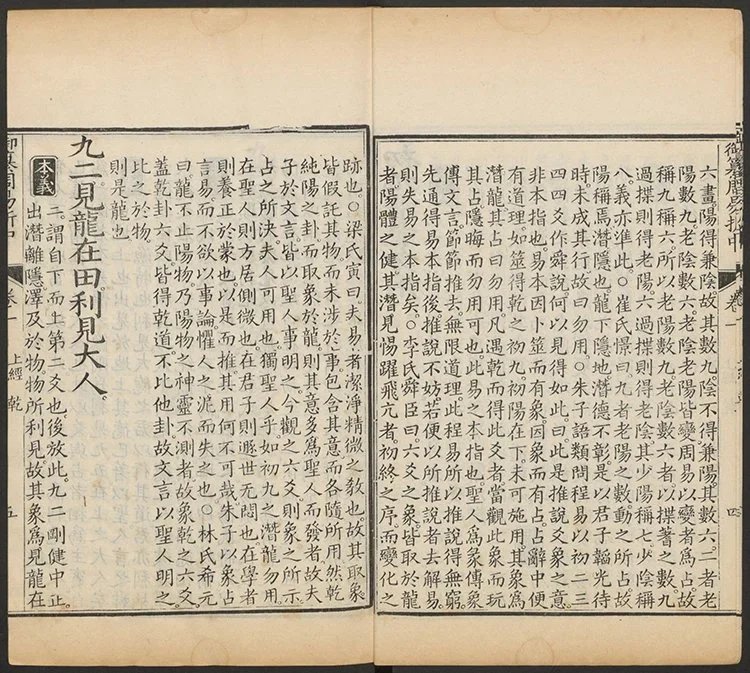 六畫陽得兼陰故其數九陰不得兼陽其數六二者老
陽數九老陰數六老陰老陽皆變周易以變者爲占故
稱九稱六所以老陽數九老陰數六者以揲蓍之數九
過揲則得老陽六過揲則得老陰其少陽稱七少陰稱
八義亦準此○崔氏憬曰九者老陽之數動之所占故
陽稱焉潛隱也龍下隱地潛德不彰是以君子韜光待
時未成其行故曰勿用○朱子語類問程易以初二三
四四爻作舜說何以見得如此曰此是推說爻象之意
非本指也易本因卜筮而有象因象而有占占辭中便
有道理。如筮得乾之初九初陽在下未可施用其象爲
潛龍其占曰勿用凡遇乾而得此爻者當觀此象而玩
其占隱晦而勿用可也此易之本指也聖人爲彖傳象
傳文言節節推去無限道理此程易所以推說得無窮
先通得易本指後推說不妨若便以所推說者去解易
則失易之本指矣○李氏舜臣曰六爻之象皆取於龍
者陽體之健其潛見惕躍飛亢者初終之序而變化之
御纂周易折中 卷一 上經 乾 四
跡也○梁氏寅曰夫易者潔淨精微之敎也故其取象
皆假託其物而未涉於事包含其意而各隨所用然乾
純陽之卦而取象於龍則其意多爲聖人而發者故夫
子於文言皆以聖人事明之今觀之六爻則象之所示
占之所決夫人可用也獨聖人乎如初九之潛龍勿用
在聖人則方居側微也在君子則遯世无悶也在學者
則養正於蒙也以是而推其用何不可哉朱子以象占
言易而不欲以事論懼人之泥而失之也○林氏希元
曰龍不止陽物乃陽物之神靈不測者故象乾之六爻
蓋乾卦六爻皆得乾道不比他卦故文言以聖人明之
此之於物
則是龍也
九二見龍在田利見大人
本義 二謂自下而上第二爻也後放此九二剛健中正
出潛離隱澤及於物物所利見故其象爲見龍在
御纂周易折中 卷一 上經 乾 五